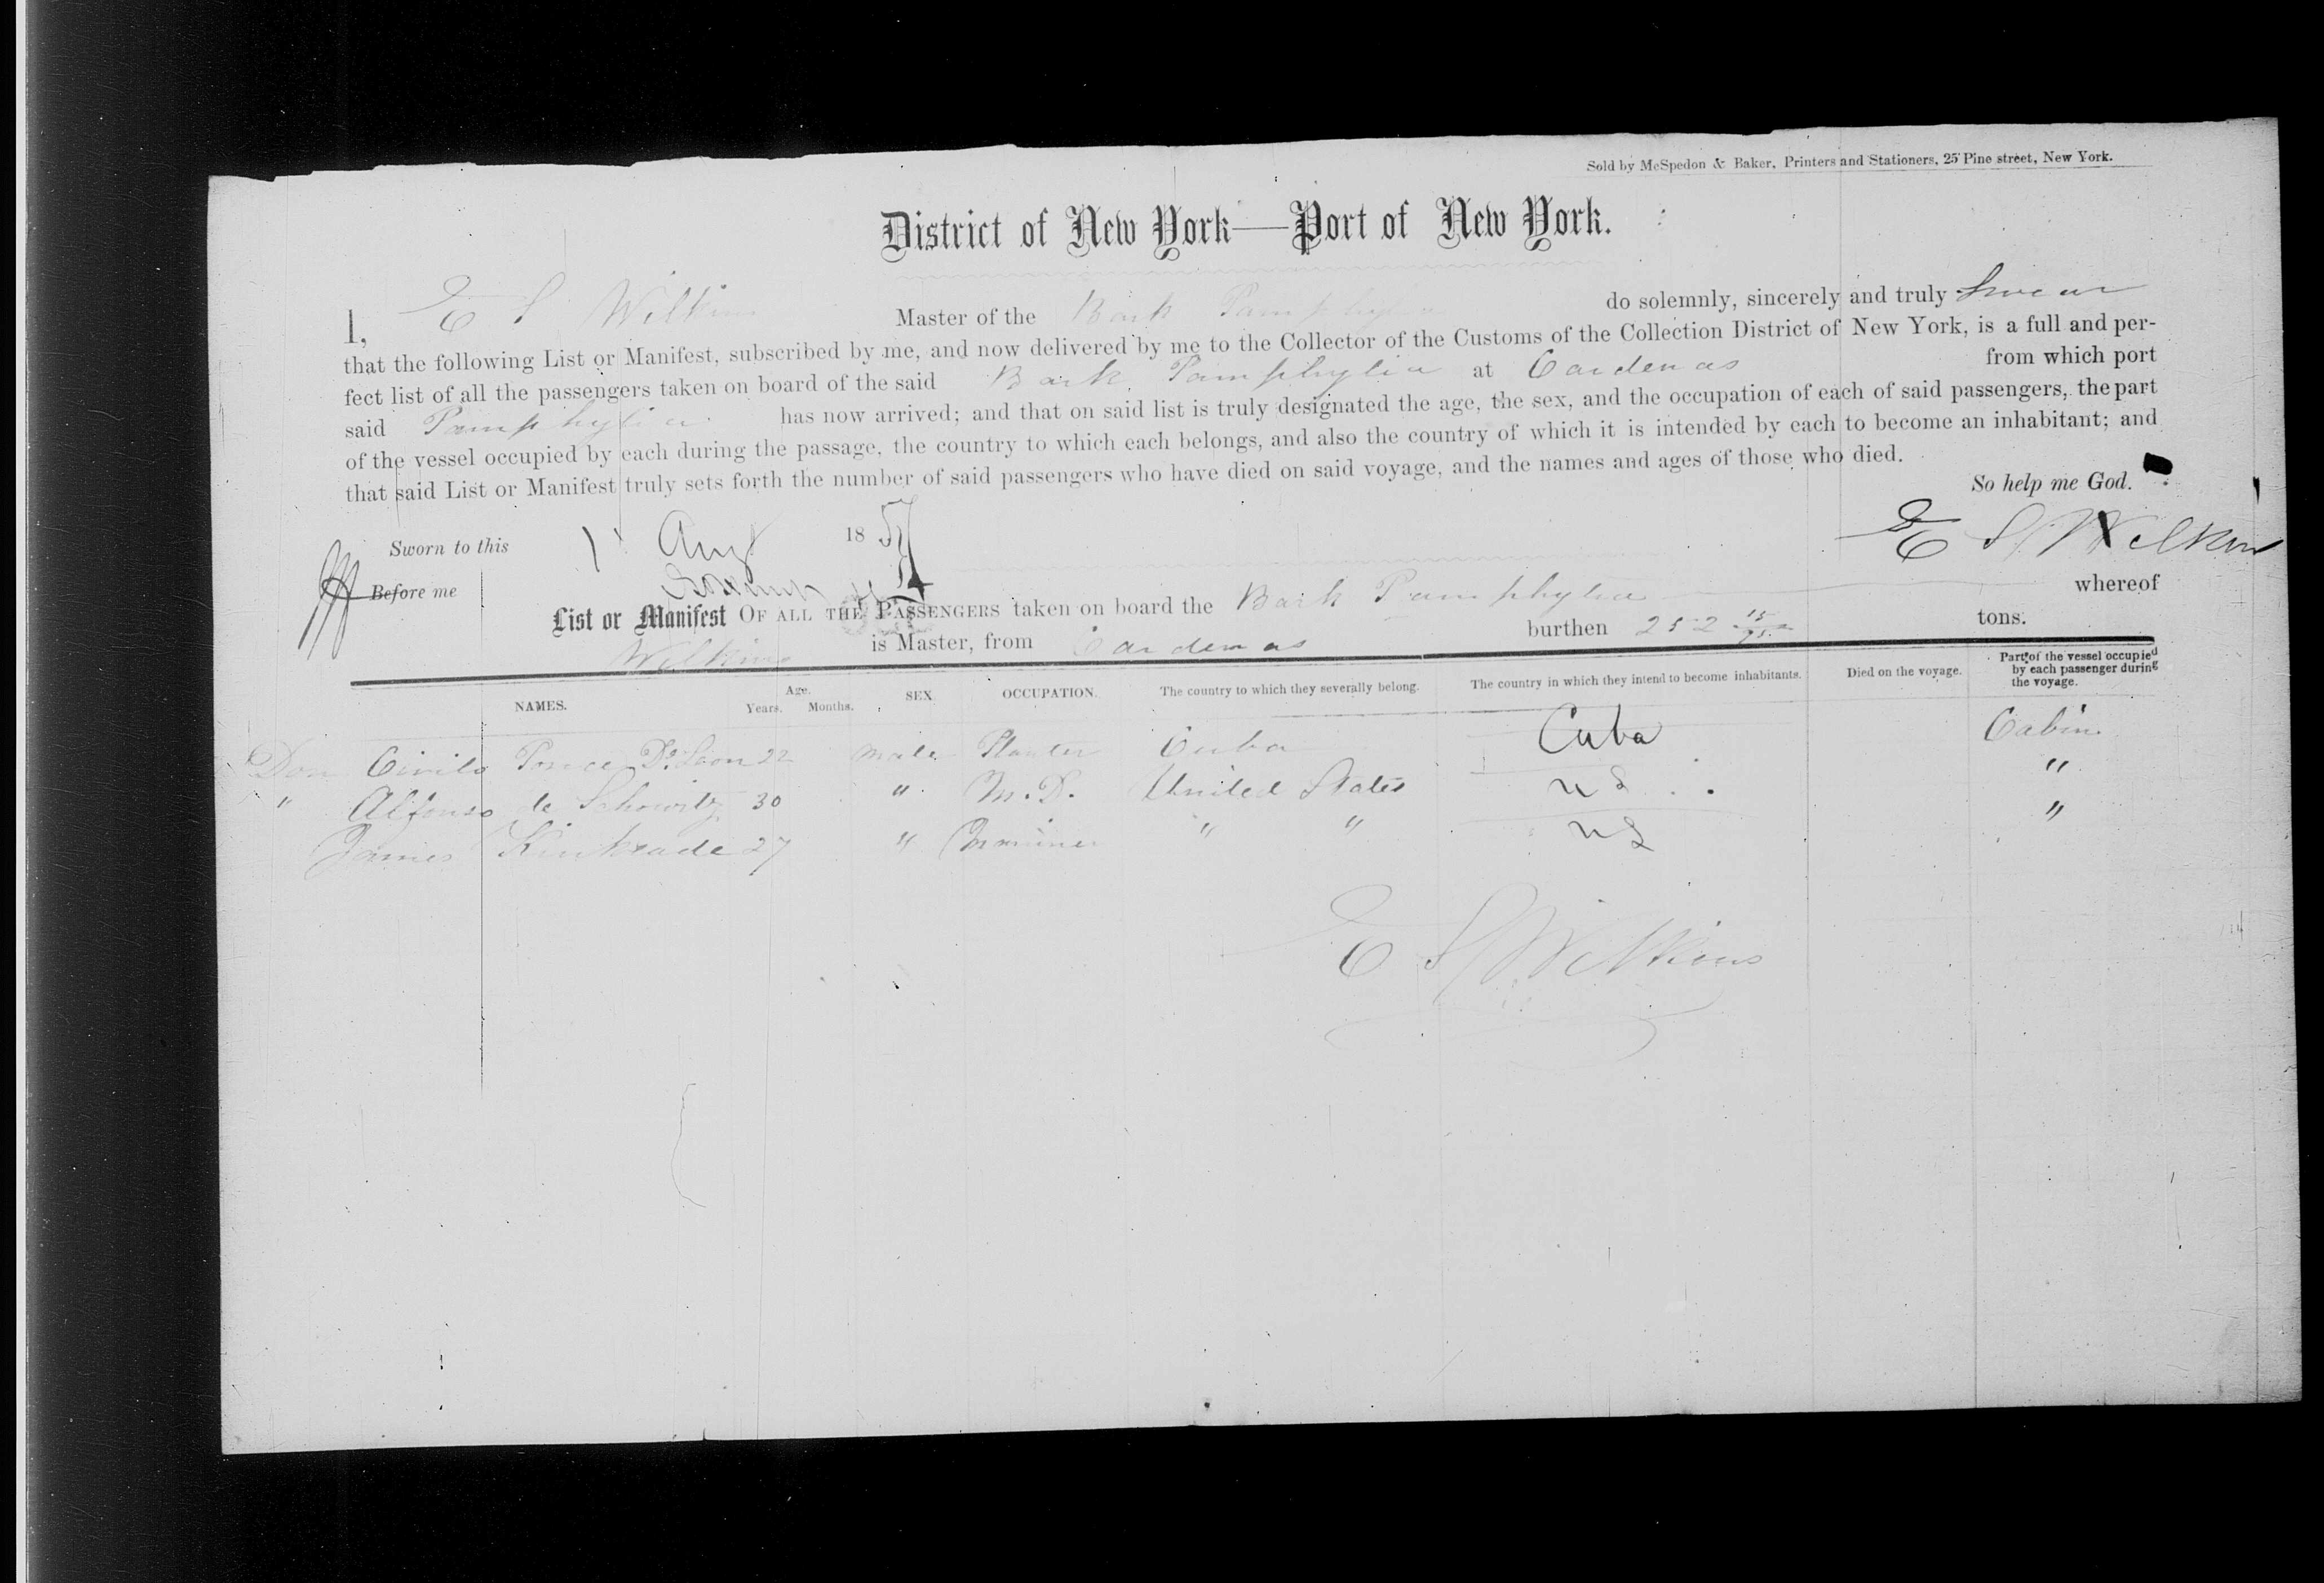 Sold by McSpedon & Baker, Printers and Stationers, 25 Pine street, New York.
District of New York—Port of New York.
I, E S Wilkins Master of the Bark Pamphylia do solemnly, sincerely and truly Swear
that the following List or Manifest, subscribed by me, and now delivered by me to the Collector of the Customs of the Collection District of New York, is a full and per-
fect list of all the passengers taken on board of the said Bark Pamphylia at Cardenas from which port
said Pamphylia has now arrived; and that on said list is truly designated the age, the sex, and the occupation of each of said passengers, the part
of the vessel occupied by each during the passage, the country to which each belongs, and also the country of which it is intended by each to become an inhabitant; and
that said List or Manifest truly sets forth the number of said passengers who have died on said voyage, and the names and ages of those who died.
So help me God.
Sworn to this 1 Aug 1857
E S Wilkins
Before me
List or Manifest OF ALL THE PASSENGERS taken on board the Bark Pamphylia whereof
Wilkins is Master, from Cardenas burthen 252 tons.
NAMES. Age. Years. Months. SEX. OCCUPATION. The country to which they severally belong. The country in which they intend to become inhabitants. Died on the voyage. Part of the vessel occupied by each passenger during the voyage.
Don Cirilo Ponce De Leon 22 male Planter Cuba Cuba Cabin
" Alfonso de Schowitz 30 " M.D. United States U S "
James Kinkeade 27 " Mariner " " U S "
E S Wilkins